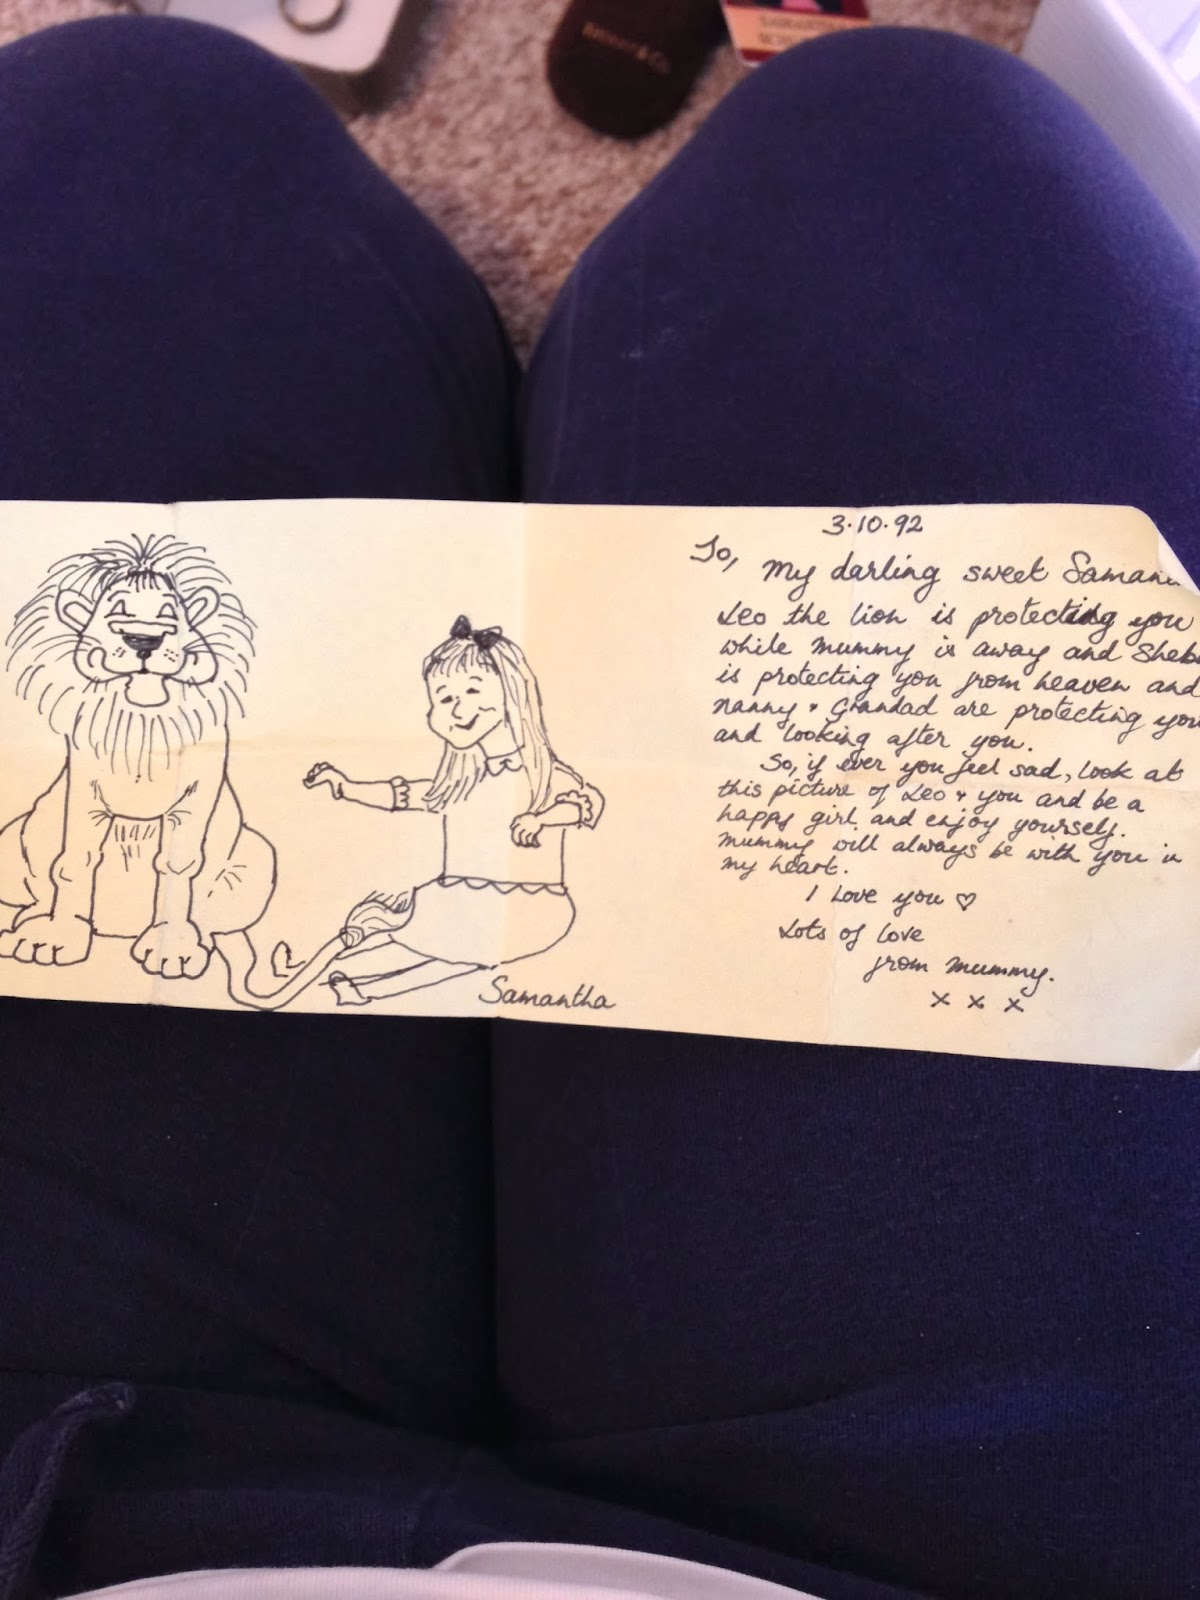 3.10.92
To, My darling sweet Saman
Leo the lion is protecting you
while mummy is away and Sheb
is protecting you from heaven and
Nanny + Grandad are protecting you
and looking after you.
So, if ever you feel sad, look at
this picture of Leo + you and be a
happy girl and enjoy yourself.
Mummy will always be with you in
my heart.
I love you ♡
Lots of love
from mummy.
x x x
Samantha